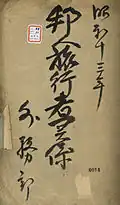 昭和十三年
邦人旅行者関係
外務部